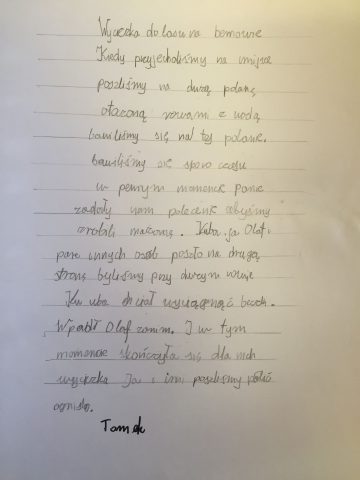 Wycieczka do lasu na bemowie
Kiedy przyjechaliśmy na miejsce
poszliśmy na dużą polanę
otaczoną rowami z wodą
bawiliśmy się na tej polanie.
bawiliśmy się sporo czasu
w pewnym momencie panie
zadały nam polecenie abyśmy
zrobili marzannę. Kuba, ja Olaf i
parę innych osób poszło na drugą
stronę byliśmy przy dużym rowie
Ku uba chciał wyciągnąć
Wpadł Olaf zanim. I w tym
momencie skończyła się dla nich
wycieczka Ja i inni poszliśmy palić
ognisko.
Tomek